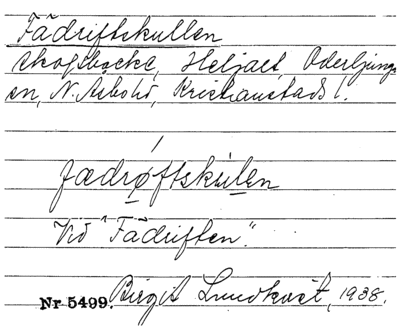 Fädriftskullen
skogsbacke, Heljalt, Oderljunga
sn, N. Åsbo hd, Kristianstads l.
fædrøftskulen
Vid "Fädriften".
Nr 5499. Birgit Lundkvist, 1938.